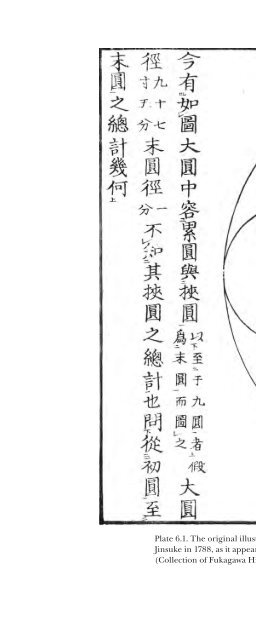 今有如圖大圓中容累圓與挾圓以至于九圓者假爲末圓而圖之大圓
徑九十七寸分末圓徑一分不知其挾圓之總計也問從初圓至
末圓之總計幾何
Plate 6.1. The original illus
Jinsuke in 1788, as it appear
(Collection of Fukagawa H